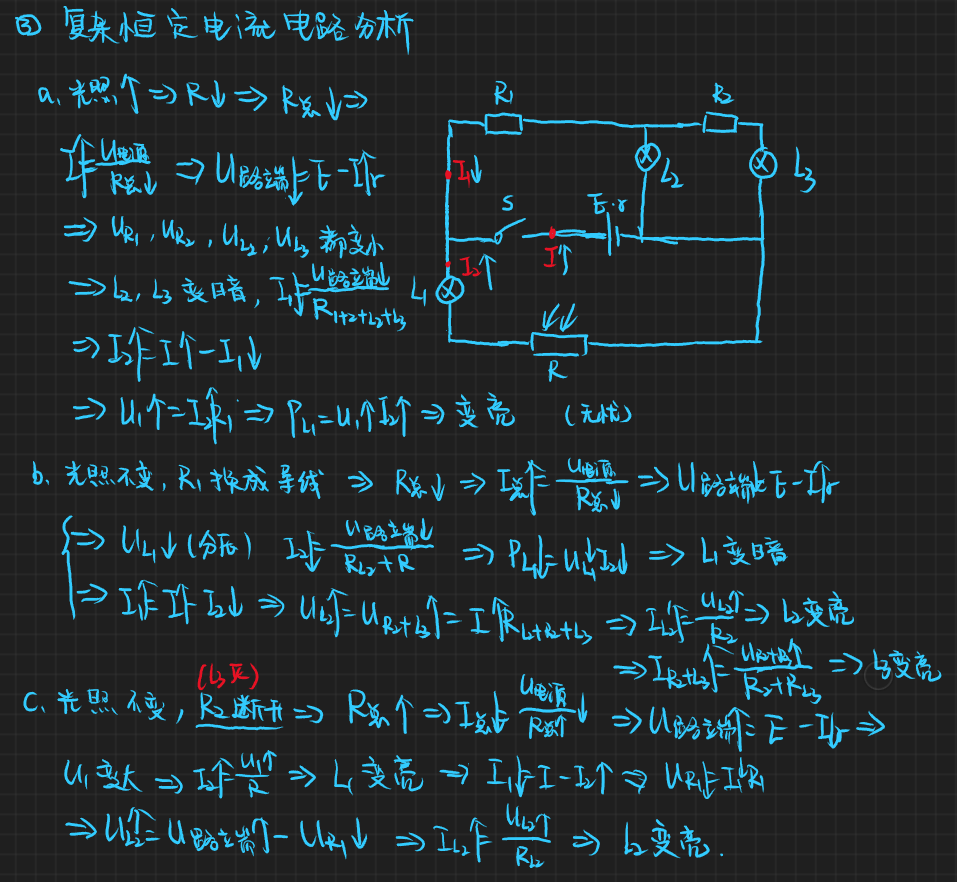 ③ 复杂恒定电流电路分析
a. 光照↑ ⇒ R↓ ⇒ R总↓ ⇒
I↑=U电源/R总↓ ⇒ U路端↓=E-I↑r
⇒ UR1, UR2, UL2, UL3 都变小
⇒ L2, L3 变暗, I1↓=U路端↓/R1+2+L2+L3
⇒ I2↑=I↑-I1↓
⇒ U1↑=I2↑R1 ⇒ PL1=U1↑I2↑ ⇒ 变亮 (无忧)
R1
R2
I1↓
L2
L3
S
E·r
I2↑
I↑
L1
R
b. 光照不变, R1换成导线 ⇒ R总↓ ⇒ I总↑=U电源/R总↓ ⇒ U路端↓=E-I↑r
⇒ UL1↓(分压) I2↓=U路端↓/RL2+R ⇒ PL1↓=UL1↓I2↓ ⇒ L1变暗
⇒ I1↑=I↑-I2↓ ⇒ UL2↑=UR2+L3↑=I↑RL2+R2+L3 ⇒ IL2↑=UL2↑/R2 ⇒ L2变亮
⇒ IR2+L3↑=UR2+L3↑/R2+RL3 ⇒ L3变亮
(L3灭)
C. 光照不变, R2断开 ⇒ R总↑ ⇒ I总↓=U电源/R总↑ ⇒ U路端↑=E-I↓r ⇒
U1变大 ⇒ I2↑=U1↑/R ⇒ L1变亮 ⇒ I1↓=I-I2↑ ⇒ UR1↓=I1↓R1
⇒ UL2↑=U路端↑-UR1↓ ⇒ IL2↑=UL2↑/RL2 ⇒ L2变亮.